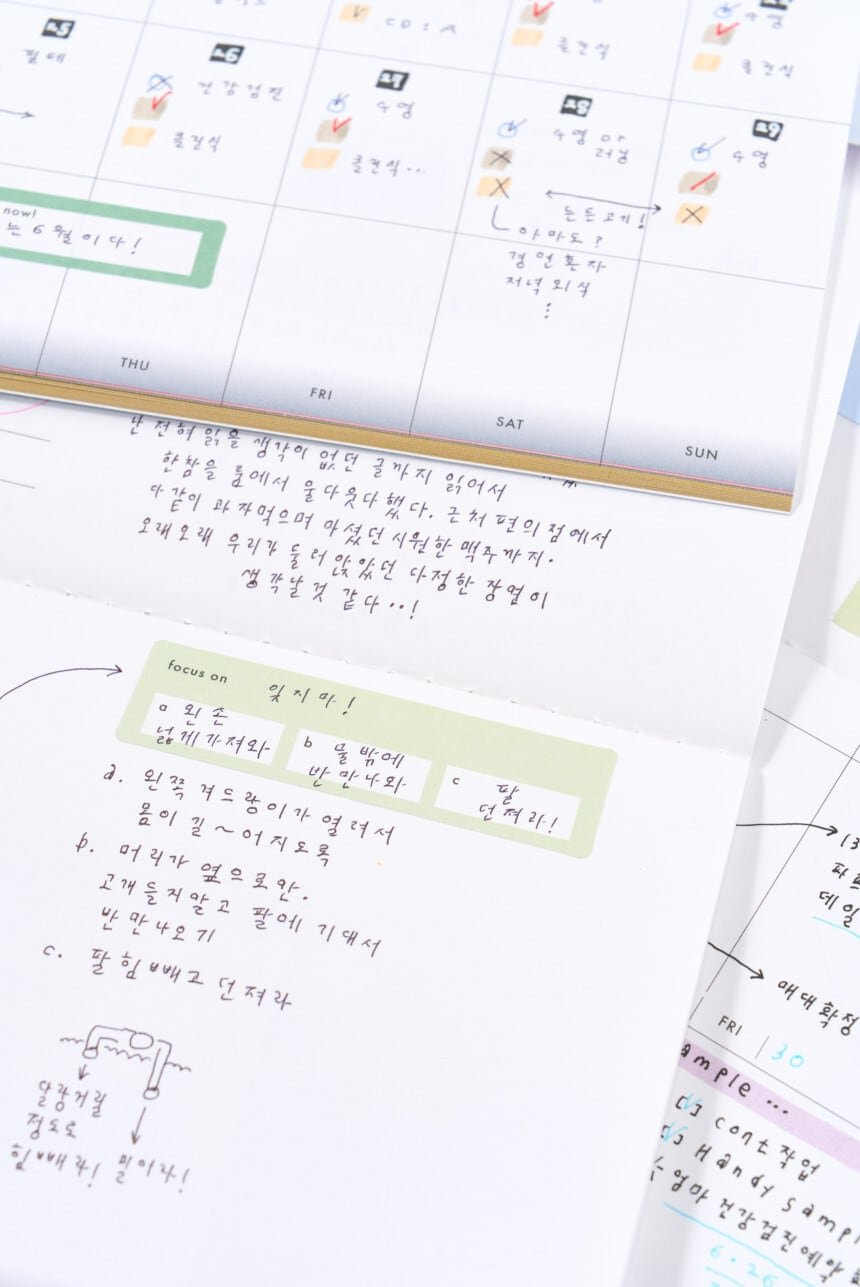 25
필테
26
건강검진
클건식
27
수영
클건식..
28
수영 or
러닝
든든고기!
아마도?
경언혼자
저녁외식
29
수영
CO : A
클건식
클건식
now!
는 6월이다!
THU
FRI
SAT
SUN
난 전혀 읽을 생각이 없던 글까지 읽어서
한참을 룸에서 울다웃다했다. 근처 편의점에서
다같이 과자먹으며 마셨던 시원한 맥주까지.
오래오래 우리가 둘러 앉았던 다정한 장면이
생각날것 같다..!
focus on
잊지마!
a 왼손
넓게가져와
b 물밖에
반만나와
c 팔
던져라!
a. 왼쪽 겨드랑이가 열려서
몸이 길~어지도록
b. 머리가 옆으로만.
고개들지말고 팔에 기대서
반만나오기
c. 팔힘빼고 던져라
달랑거릴
정도로
힘빼라!
밀어라!
13
데일
매대확정
FRI
30
ample ...
cont작업
Handy sampl
엄마 건강검진예약
6.26